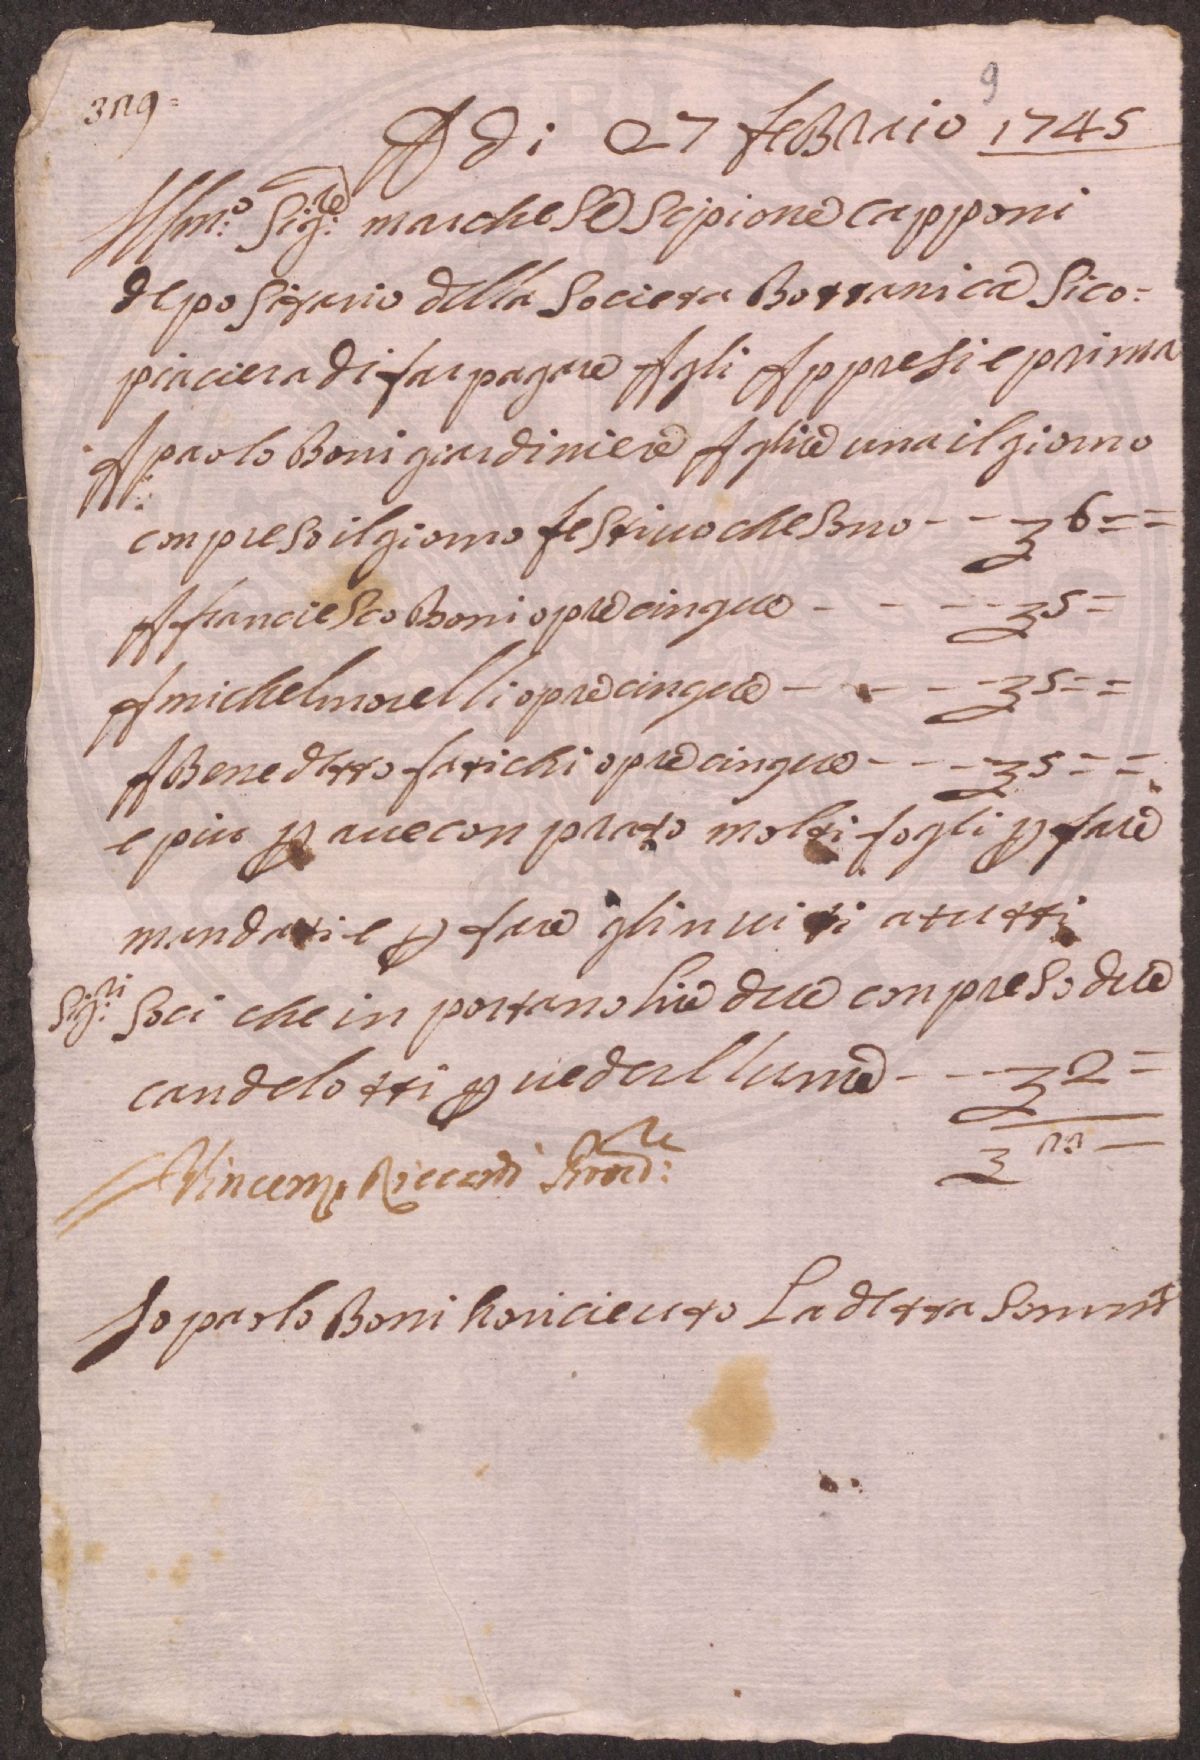 329=
9
Adi 27 febraio 1745
Illmo: Sig:re marchese Scipione capponi
depositario della Societa Bottanica Sico=
piaciera di far pagare Agli Appresi e prima
A paolo Boni giardiniere A lire una il giorno
conpreso il giorno festiuo che sono - - - £ 6 = =
A franciesco Boni opre cinque - - - - - £ 5 =
A michel morelli opre cinque - - - - - £ 5 = =
A Benedetto fatichi opre cinque - - - - £ 5 = =
e piu p auer conprato molti fogli p fare
mandati e p fare glinuiti a tutti
Sig:ri Soci che in portano lire due conpreso due
candelotti p ueder llume - - - £ 2 =
£ 23 —
Vincenzo Riccardi Prou:re
Io paolo Boni ho riceuto La detta Somma